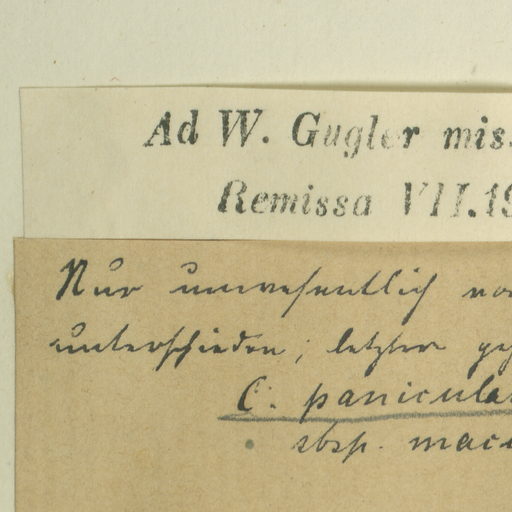 Ad W. Gugler mis
Remissa VII.19
Nur unwesentlich
unterschieden; letztere
C. panicula
sbsp. mac